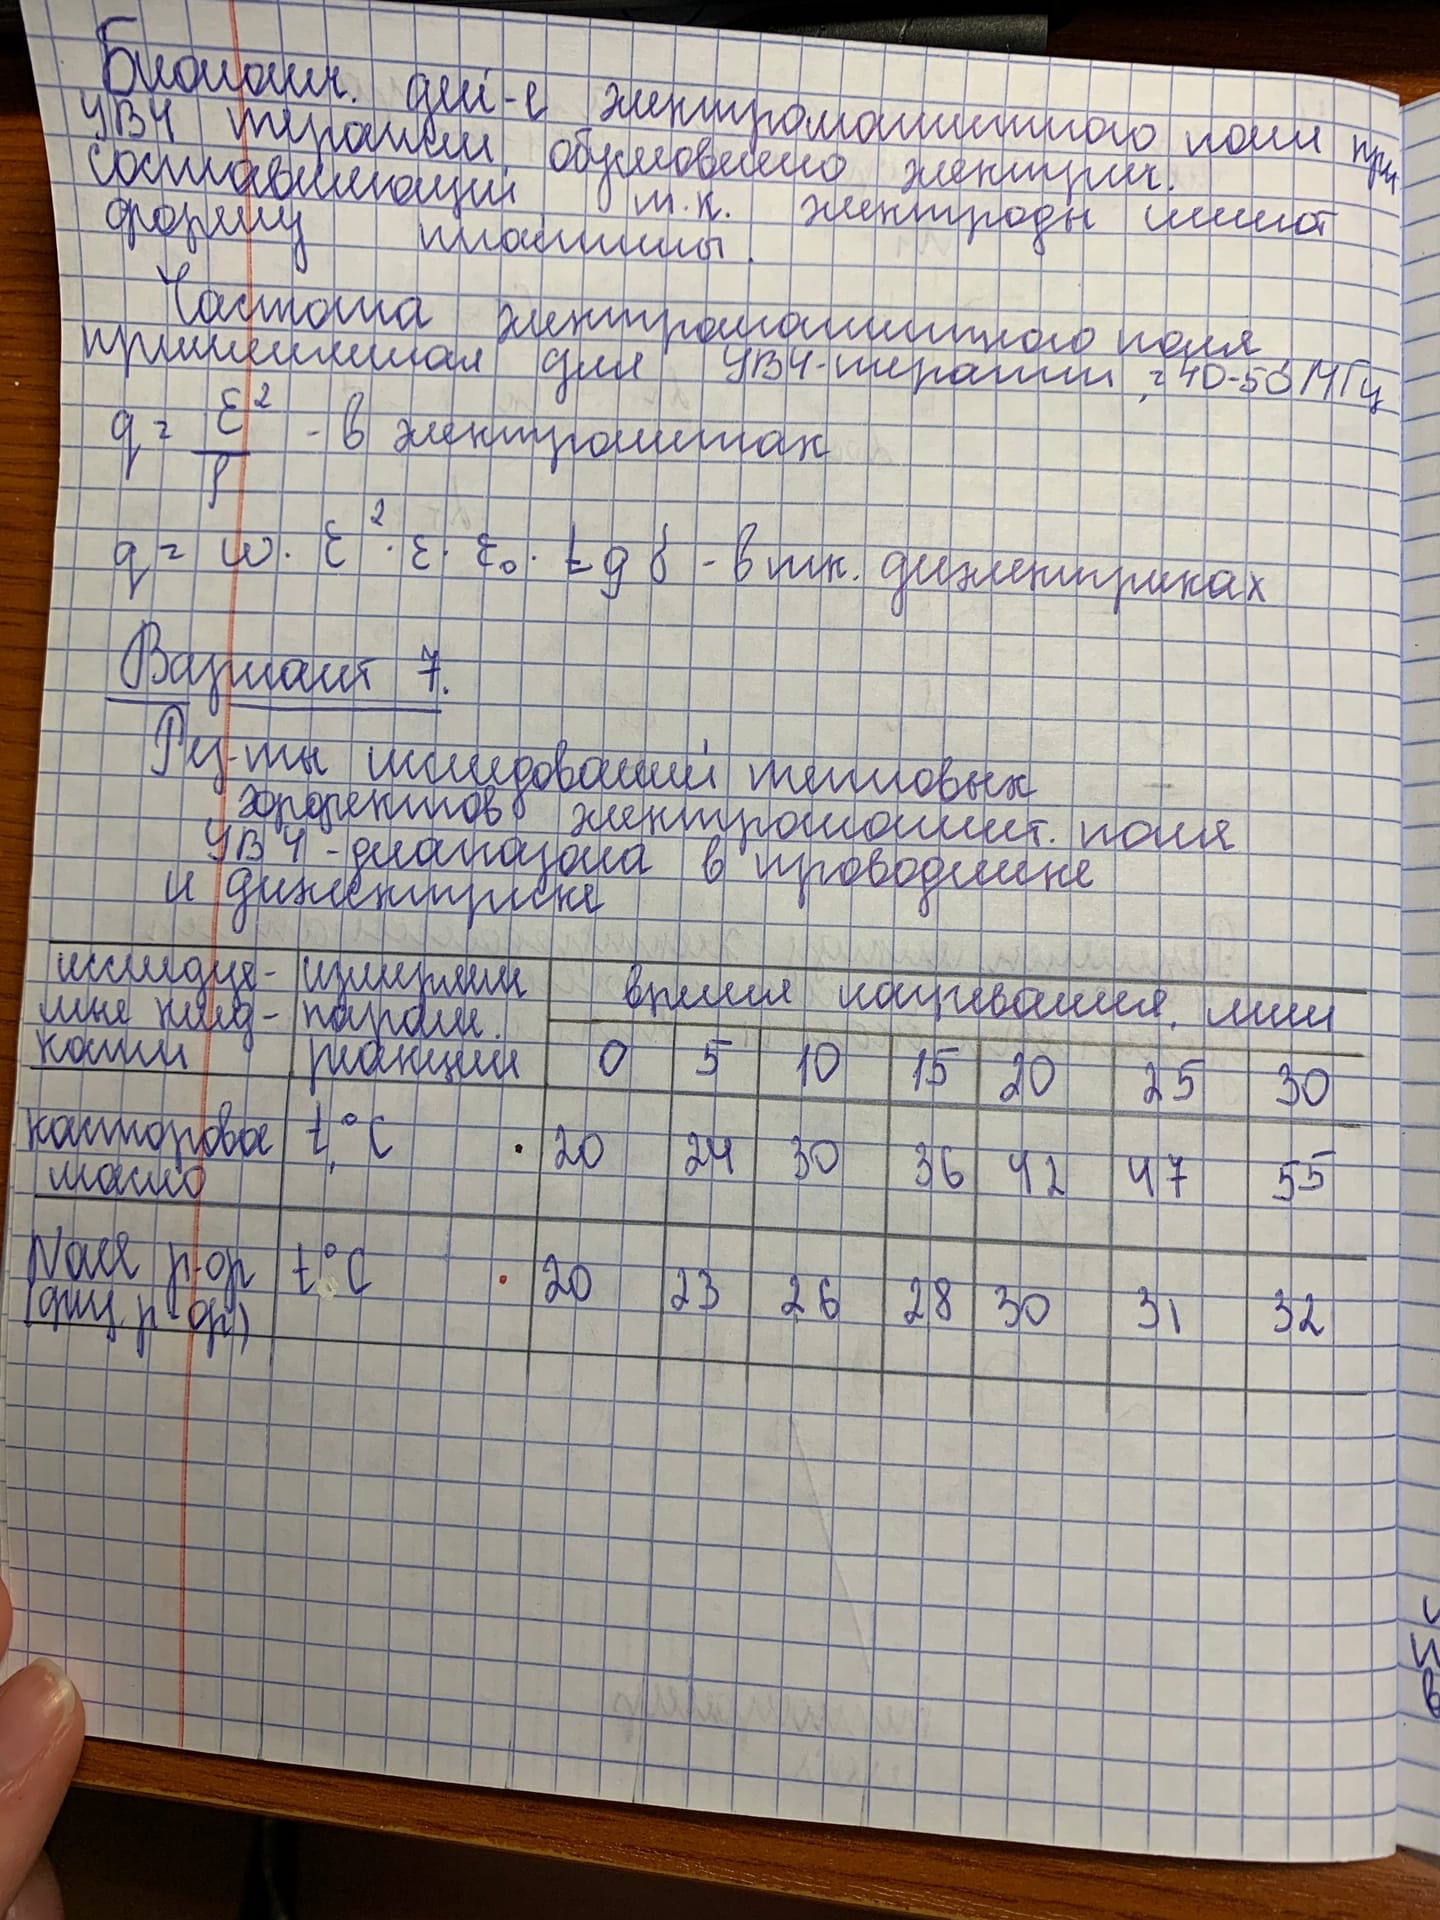 Биологич. дей-е электромагнитного поля при
УВЧ терапии, обусловлено электрич.
составляющий, т.к. электроды имеют
форму пластины.
Частота электромагнитного поля
применяемая для УВЧ-терапии, = 40-50 МГц
q = E² / ρ - в электролитах
q = ω · E² · ε · ε₀ · tg δ - в тк. диэлектриках
Вариант 7.
Рез-ты исследований тепловых
эффектов электромагнит. поля
УВЧ-диапазона в проводнике
и диэлектрике
исследуе- измеряем время нагревания, мин
мые жид- парам.
кости реакции 0 5 10 15 20 25 30
касторовое t, °C 20 24 30 36 42 47 55
масло
NaCl р-ор t °C 20 23 26 28 30 31 32
(физ. р-ор)